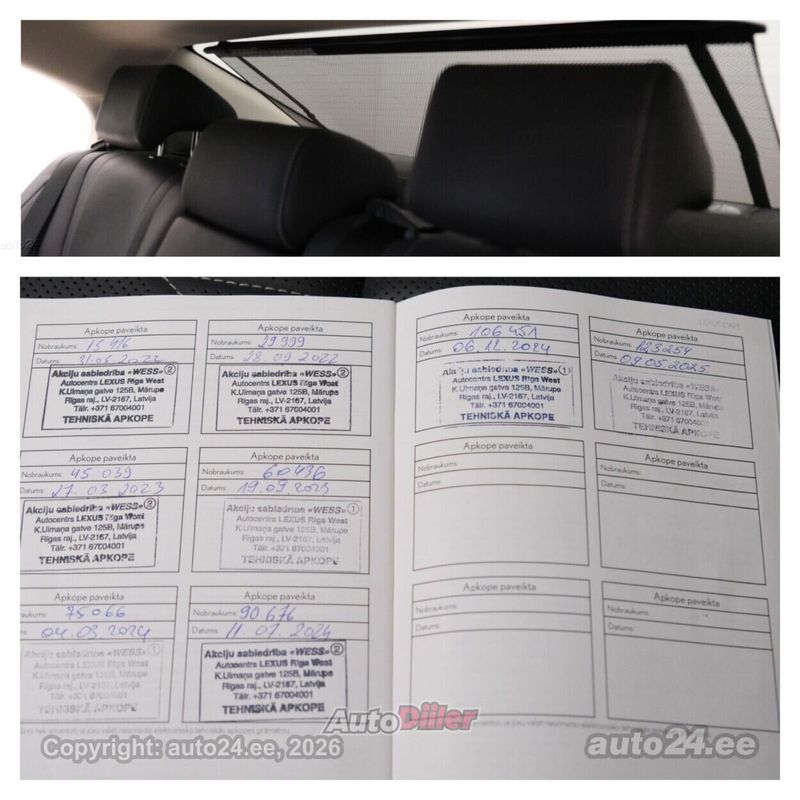 auto24
LEXUS CARE
Apkope paveikta
Nobraukums: 15 416
Datums: 31.05.2022
Akciju sabiedrība «WESS» 2
Autocentrs LEXUS Rīga West
K.Ulmaņa gatve 125B, Mārupe
Rīgas raj., LV-2167, Latvija
Tālr. +371 67004001
TEHNISKĀ APKOPE
Apkope paveikta
Nobraukums: 29 999
Datums: 28.09.2022
Akciju sabiedrība «WESS» 2
Autocentrs LEXUS Rīga West
K.Ulmaņa gatve 125B, Mārupe
Rīgas raj., LV-2167, Latvija
Tālr. +371 67004001
TEHNISKĀ APKOPE
Apkope paveikta
Nobraukums: 45 039
Datums: 27.03.2023
Akciju sabiedrība «WESS» 2
Autocentrs LEXUS Rīga West
K.Ulmaņa gatve 125B, Mārupe
Rīgas raj., LV-2167, Latvija
Tālr. +371 67004001
TEHNISKĀ APKOPE
Apkope paveikta
Nobraukums: 60436
Datums: 19.09.2023
Akciju sabiedrība «WESS» 1
Autocentrs LEXUS Rīga West
K.Ulmaņa gatve 125B, Mārupe
Rīgas raj., LV-2167, Latvija
Tālr. +371 67004001
TEHNISKĀ APKOPE
Apkope paveikta
75066
04.03.2024
Akciju sabiedrība «WESS» 1
Autocentrs LEXUS Rīga West
K.Ulmaņa gatve 125B, Mārupe
Rīgas raj., LV-2167, Latvija
Tālr. +371 67004001
TEHNISKĀ APKOPE
Apkope paveikta
Nobraukums: 90 676
Datums: 11.07.2024
Akciju sabiedrība «WESS» 2
Autocentrs LEXUS Rīga West
K.Ulmaņa gatve 125B, Mārupe
Rīgas raj., LV-2167, Latvija
Tālr. +371 67004001
TEHNISKĀ APKOPE
Apkope paveikta
Nobraukums: 106 451
Datums: 06.12.2024
Akciju sabiedrība «WESS» 1
Autocentrs LEXUS Rīga West
K.Ulmaņa gatve 125B, Mārupe
Rīgas raj., LV-2167, Latvija
Tālr. +371 67004001
TEHNISKĀ APKOPE
Apkope paveikta
Nobraukums: 123254
Datums: 09.05.2025
Akciju sabiedrība «WESS»
Autocentrs LEXUS Rīga West
K.Ulmaņa gatve 125B, Mārupe
Rīgas raj., LV-2167, Latvija
Tālr. +371 67004001
TEHNISKĀ APKOPE
Apkope paveikta
Nobraukums:
Datums:
Apkope paveikta
Nobraukums:
Datums:
Apkope paveikta
Nobraukums:
Datums:
Apkope paveikta
Nobraukums:
Datums:
AutoDiiler
Copyright: auto24.ee, 2026
auto24.ee